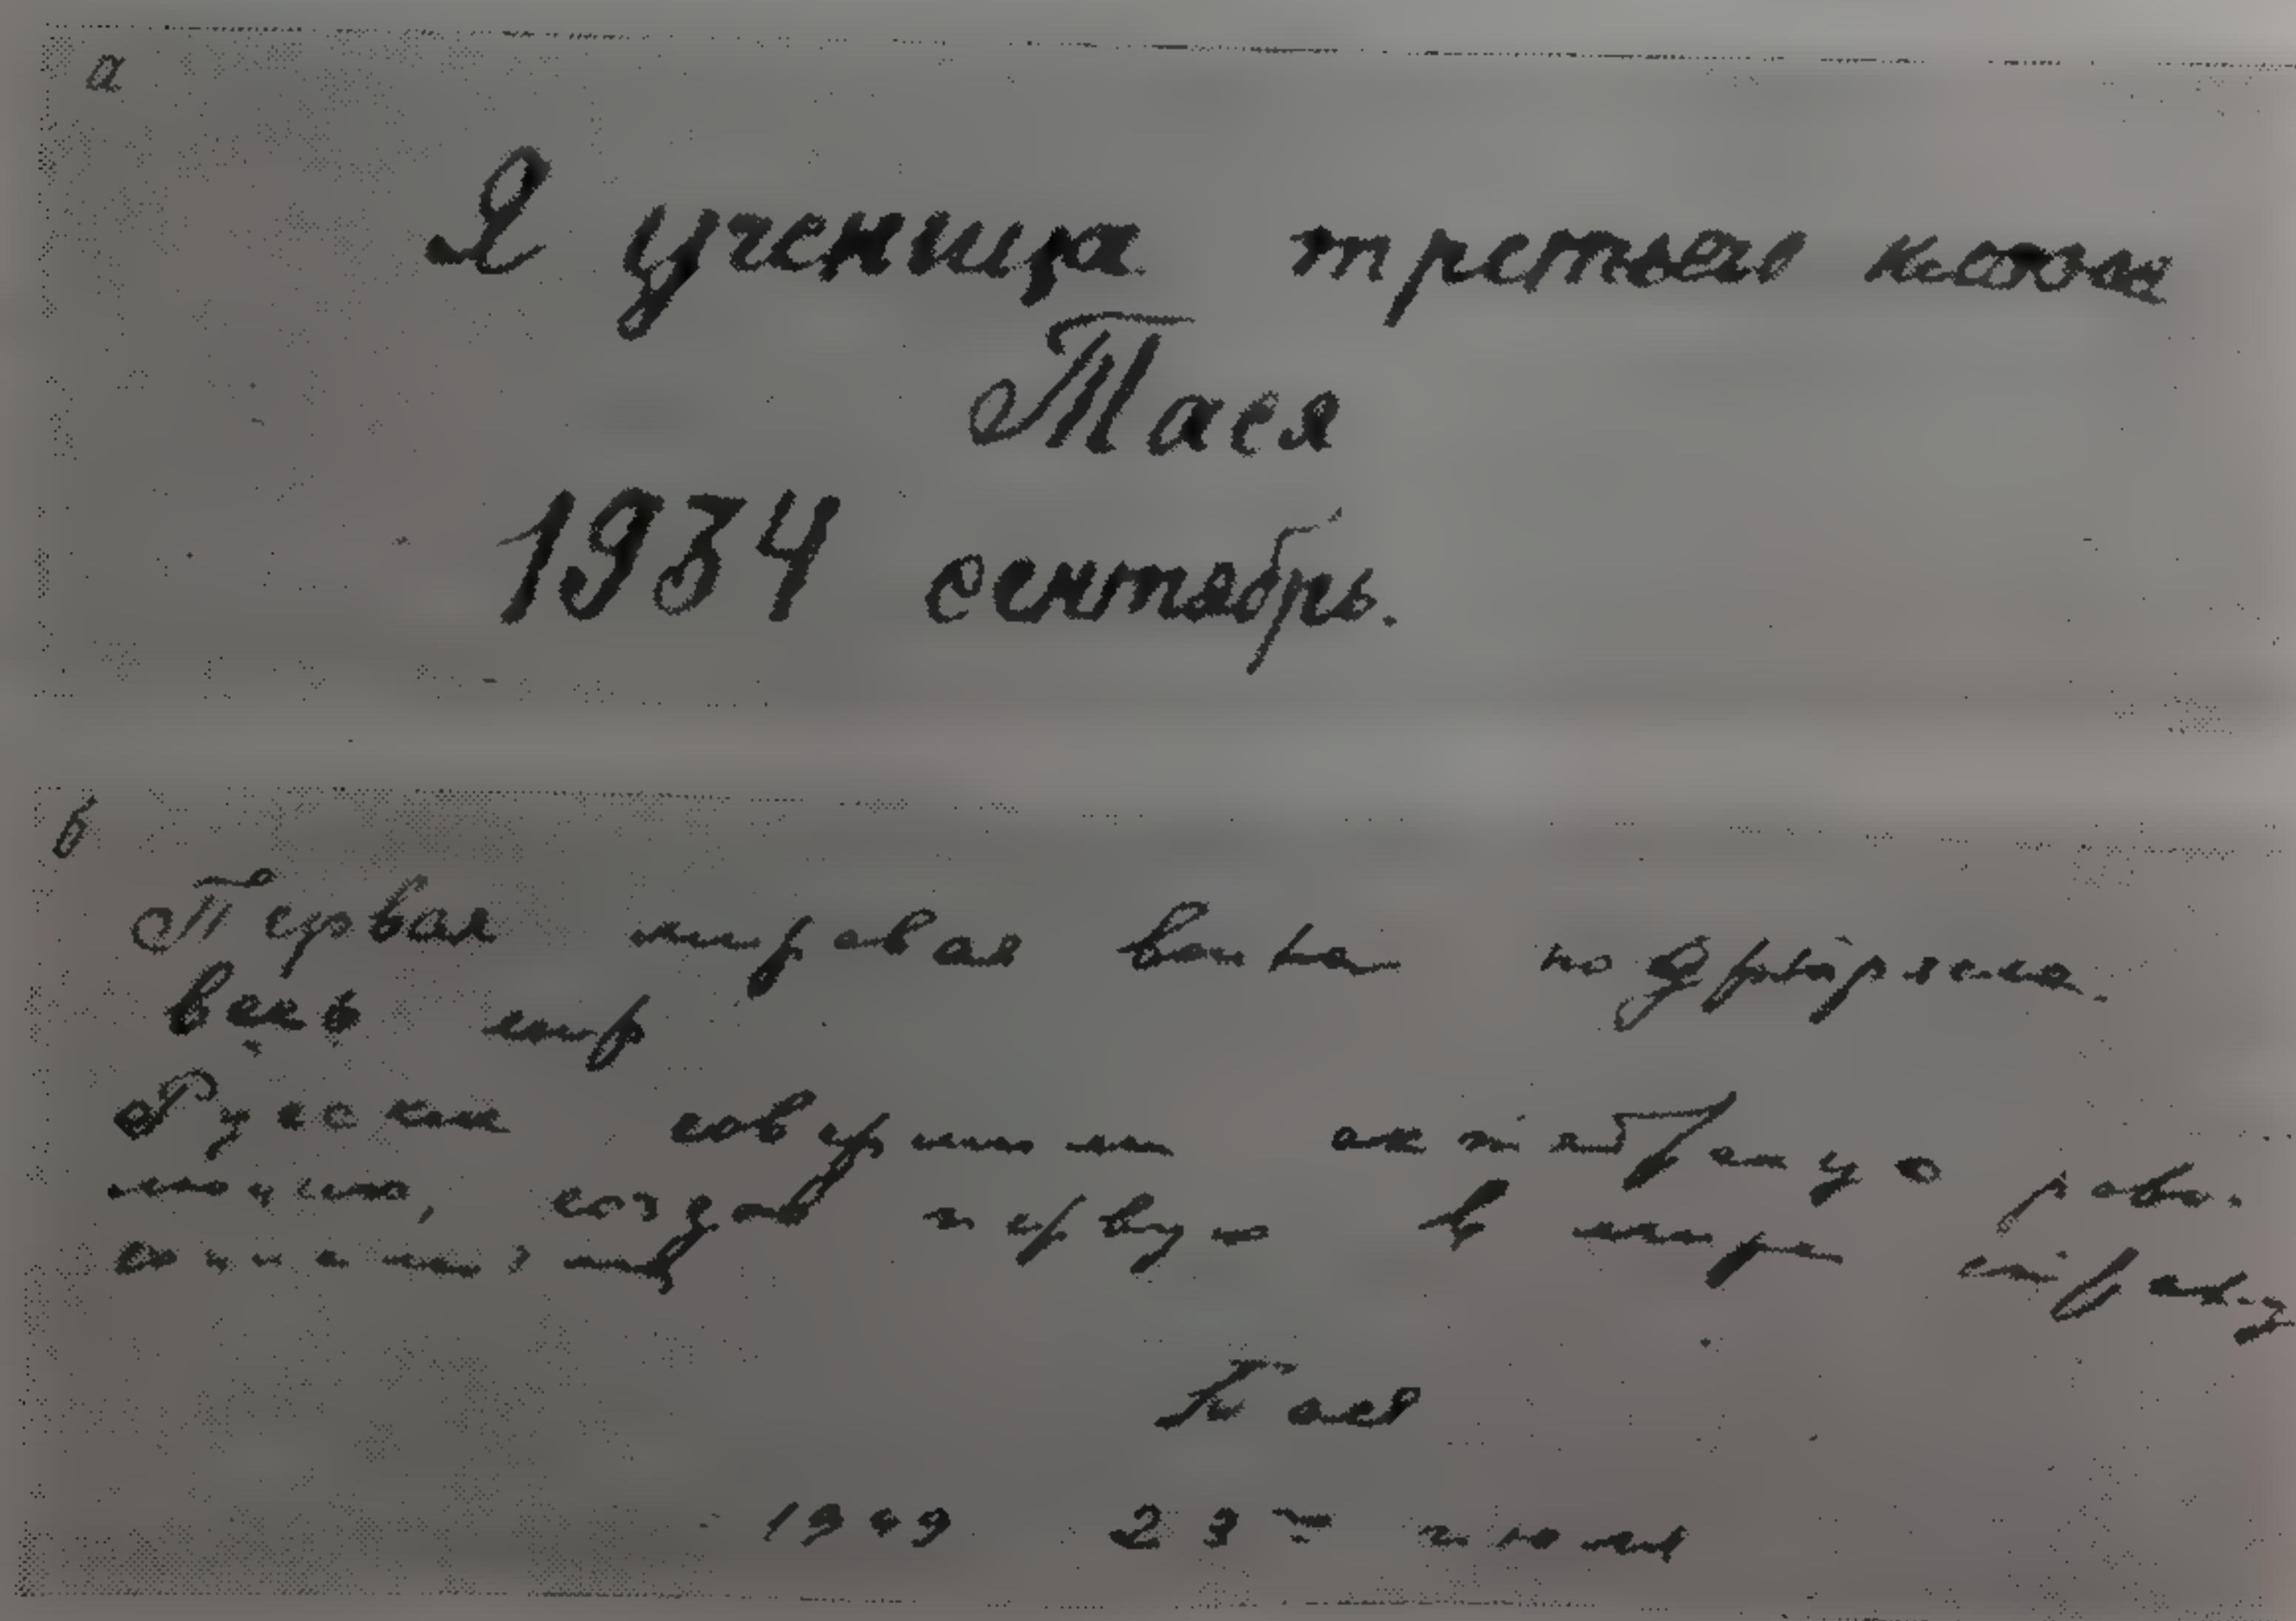 а
Я ученица третьего класса
Тася
1934 сентябрь.
б
Первая мировая война
весь мир
Русские совершили октябрьскую рево-
люцию, создав первую в мире страну
Тася
1949 23 июня